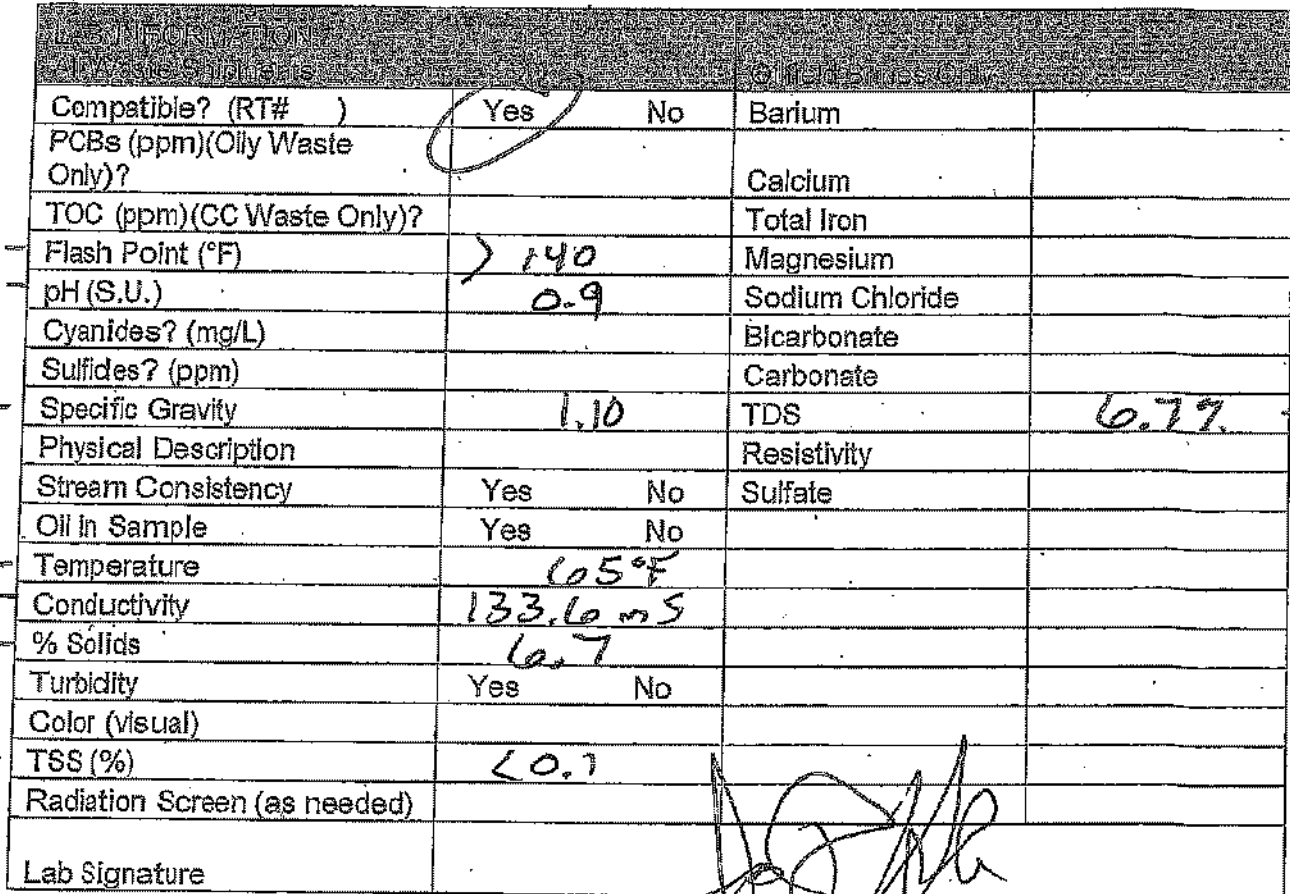 LAB INFORMATION
All Waste Shipments Oilfield Brines Only
Compatible? (RT# ) Yes No Barium
PCBs (ppm)(Oily Waste
Only)? Calcium
TOC (ppm)(CC Waste Only)? Total Iron
Flash Point (°F) > 140 Magnesium
pH (S.U.) 0.9 Sodium Chloride
Cyanides? (mg/L) Bicarbonate
Sulfides? (ppm) Carbonate
Specific Gravity 1.10 TDS 6.7%
Physical Description Resistivity
Stream Consistency Yes No Sulfate
Oil in Sample Yes No
Temperature 65°F
Conductivity 133.6 mS
% Solids 6.7
Turbidity Yes No
Color (visual)
TSS (%) <0.1
Radiation Screen (as needed)
Lab Signature